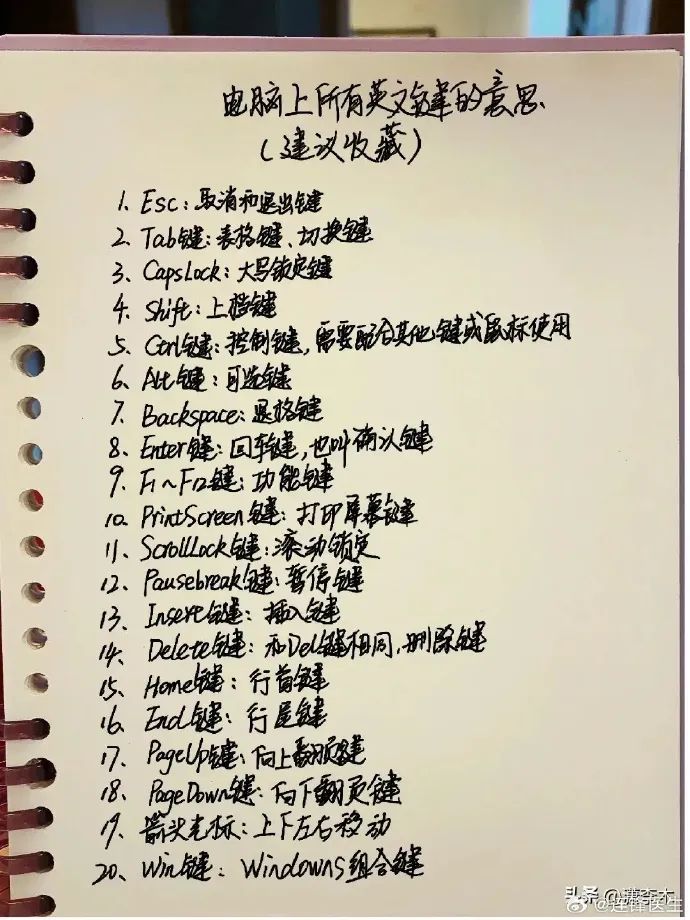 电脑上所有英文键的意思
(建议收藏)
1. Esc:取消和退出键
2、Tab键:表格键、切换键
3、CapsLock:大写锁定键
4、Shift:上档键
5、Ctrl键:控制键,需要配合其他键或鼠标使用
6、Alt键:可选键
7、Backspace:退格键
8、Enter键:回车键,也叫确认键
9、F1~F12键:功能键
10、PrintScreen键:打印屏幕键
11、ScrollLock键:滚动锁定
12、Pausebreak键:暂停键
13、Insert键:插入键
14、Delete键:和Del键相同,删除键
15、Home键:行首键
16、End键:行尾键
17、PageUp键:向上翻页键
18、PageDown键:向下翻页键
19、箭头光标:上下左右移动
20、Win键:Windowns组合键
头条
@连锋医生